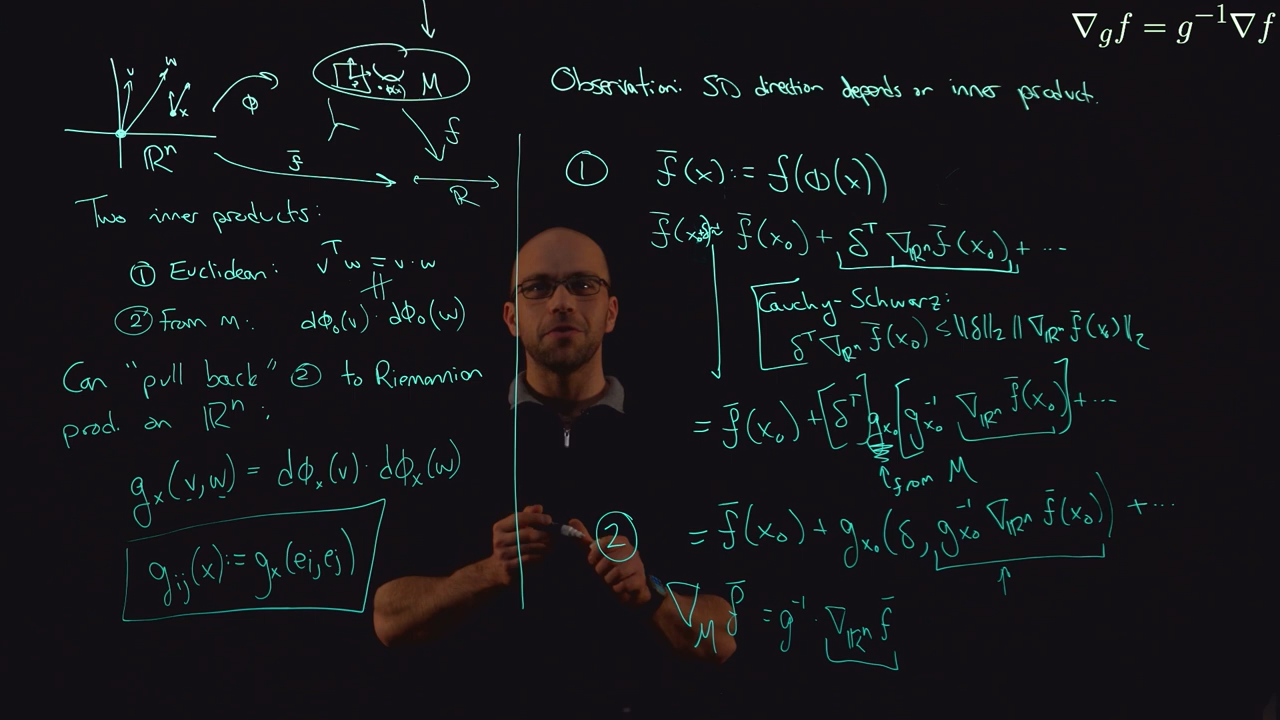 ∇_g f = g⁻¹∇f
v w x φ M φ(x)
f̄ f
ℝⁿ ℝ
Two inner products:
① Euclidean: vᵀw = v · w
② From M: dφₓ(v) · dφₓ(w)
Can "pull back" ② to Riemannian
prod. on ℝⁿ:
gₓ(v, w) = dφₓ(v) · dφₓ(w)
g_ij(x) := gₓ(eᵢ, eⱼ)
Observation: SD direction depends on inner product.
① f̄(x) := f(φ(x))
f̄(x₀+δ) ≈ f̄(x₀) + δᵀ ∇_ℝⁿ f̄(x₀) + ⋯
Cauchy-Schwarz:
δᵀ ∇_ℝⁿ f̄(x₀) ≤ ‖δ‖₂ ‖∇_ℝⁿ f̄(x₀)‖₂
= f̄(x₀) + [δᵀ] g_x₀ [g_x₀⁻¹ ∇_ℝⁿ f̄(x₀)] + ⋯
from M
② = f̄(x₀) + g_x₀(δ, g_x₀⁻¹ ∇_ℝⁿ f̄(x₀)) + ⋯
∇_M f̄ = g⁻¹ · ∇_ℝⁿ f̄